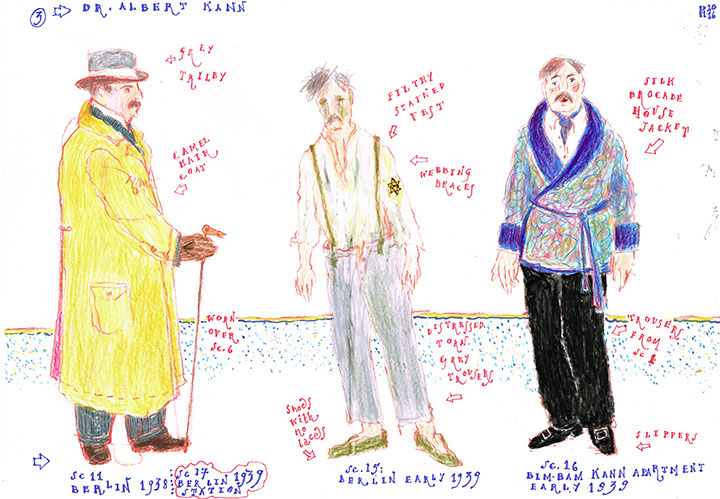 3 ⇨ DR. ALBERT KANN
20
16
GREY
TRILBY
CAMEL
HAIR
COAT
WORN
OVER
SC. 6
FILTHY
STAINED
VEST
WEBBING
BRACES
DISTRESSED
TORN
GREY
TROUSERS
SHOES
WITH
NO
LACES
SILK
BROCADE
HOUSE
JACKET
TROUSERS
FROM
SLIPPERS
SC 11
BERLIN 1938:
SC 17
BERLIN 1939
STATION
SC. 15:
BERLIN EARLY 1939
SC. 16
BIM-BAM KANN APARTMENT
EARLY 1939